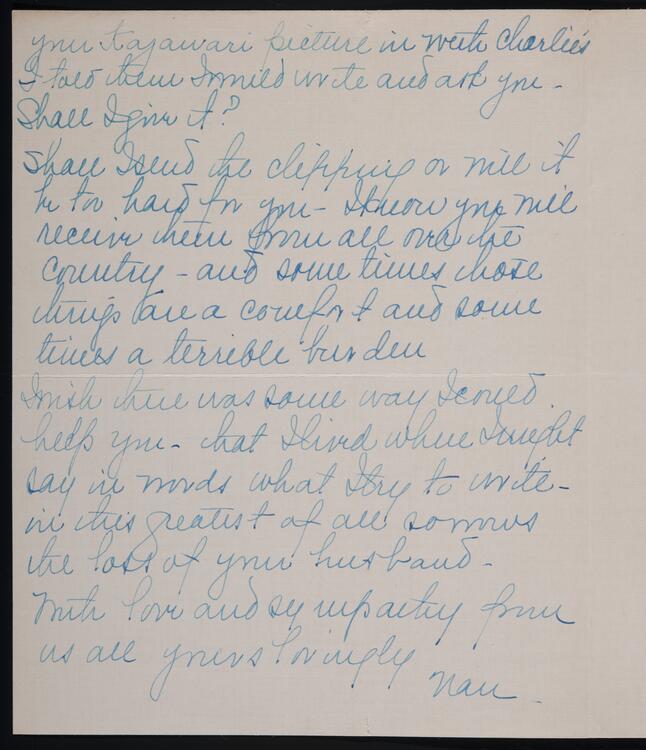 your Kajawari picture in with Charlie's
I told them I would write and ask you -
Shall I give it?
Shall I send the clipping or will it
be too hard for you - I know you will
receive them from all over the
country - and some times those
things are a comfort and some
times a terrible burden
I wish there was some way I could
help you - that I lived where I might
say in words what I try to write -
in this greatest of all sorrows
the loss of your husband -
With love and sympathy from
us all yours lovingly
Nan -